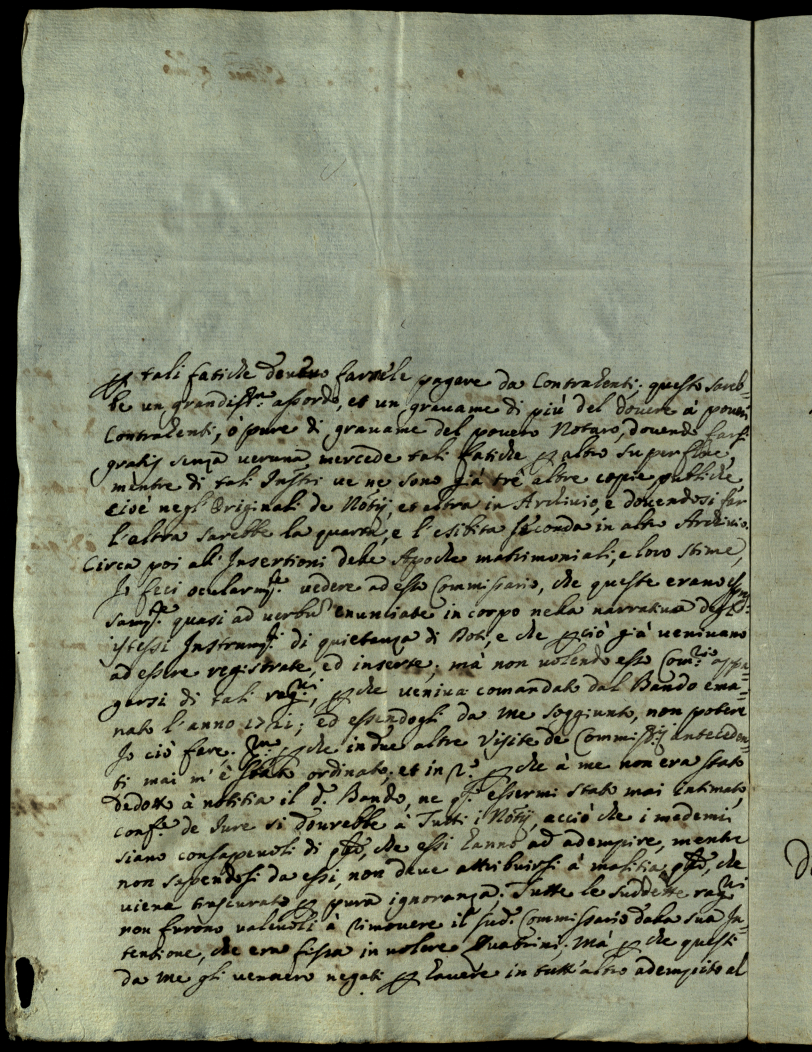 tali fatiche devono farsele pagare da Contrahenti; questo sareb=
be un grandiss.º assordo, et un gravame di più del dovere à poveri
Contrahenti, ò pure di gravame del povero Notaro, dovendo farsi
gratis senza veruna mercede tali fatiche altro superflue,
mentre di tali Instri ve ne sono già trè altre copie publiche
cioè negl'Originali de Notij, et altra in Archivio, e dovendosi far
l'altra sarebbe la quarta, e l'esibita seconda in altro Archivio.
Circa poi all'Insertioni delle Apoche matrimoniali, e loro stime,
Io feci ocularmte vedere ad esso Commissario, che queste erano
quasi ad verbu enunciate in corpo nella narrativa degl'
istessi Instrumti di quietanza di Doti, e che ciò già venivano
ad essere registrate, ed inserte; mà non volendo esso Comrio appa=
garsi di tali ragni, che veniva comandato dal Bando ema=
nato l'anno 1721; ed essendogli da me soggiunto, non potere
Io ciò fare. che in due altre Visite de Commissrij anteceden=
ti mai m'è stato ordinato. et in 2º che à me non era stato
dedotto à notitia il d.º Bando, ne essermi stato mai intimato,
conf.e de Jure si dovrebbe à Tutti i Notij acciò che i medemi
siano consapevoli di che essi hanno ad adempire, mentre
non sapendosi da essi, non deve attribuirsi à malitia che
viene trascurato pura ignoranza; Tutte le suddette ragni
non furono valevoli à rimovere il sud.º Commissario dalla sua In=
tentione, che era fissa in volere Quatrini; Mà che questi
da me gli vennero negati havere in tutt'altro adempito al